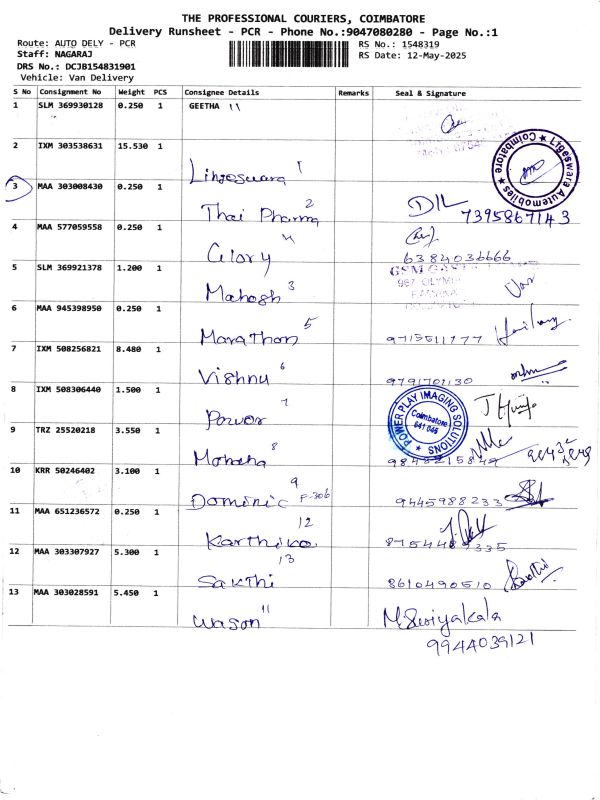 THE PROFESSIONAL COURIERS, COIMBATORE
Delivery Runsheet - PCR - Phone No.:9047080280 - Page No.:1
Route: AUTO DELY - PCR
RS No.: 1548319
Staff: NAGARAJ
RS Date: 12-May-2025
DRS No.: DCJB154831901
Vehicle: Van Delivery
S No Consignment No Weight PCS Consignee Details Remarks Seal & Signature
1 SLM 369930128 0.250 1 GEETHA 11
2 IXM 303538631 15.530 1
Lingeswara 1
Coimbatore
3 MAA 303008430 0.250 1
Thai Pharma 2 7395867143
4 MAA 577059558 0.250 1
Glory 6384036666
5 SLM 369921378 1.200 1
Mahogh 3
6 MAA 945398950 0.250 1
Marathon 5
7 IXM 508256821 8.480 1
Vishnu 6 9791701130
8 IXM 508306440 1.500 1
Power 7
POWER PLAY IMAGING SOLUTIONS
Coimbatore
641 045
9 TRZ 25520218 3.550 1
8
10 KRR 50246402 3.100 1
Dominic 9 F-306 9445988233
11 MAA 651236572 0.250 1
Karthika 12
12 MAA 303307927 5.300 1
Sakthi 13 8610490510
13 MAA 303028591 5.450 1
Wason 11 M.Suriyakala
9944039121